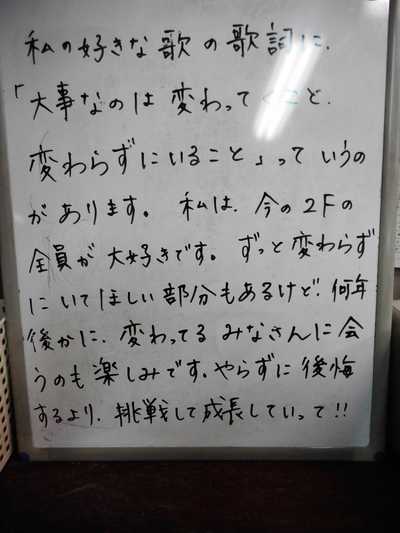 私の好きな歌の歌詞に、
「大事なのは変わってくこと、
変わらずにいること」っていうの
があります。私は、今の2Fの
全員が大好きです。ずっと変わらず
にいてほしい部分もあるけど、何年
後かに、変わってるみなさんに会
うのも楽しみです。やらずに後悔
するより、挑戦して成長していって!!